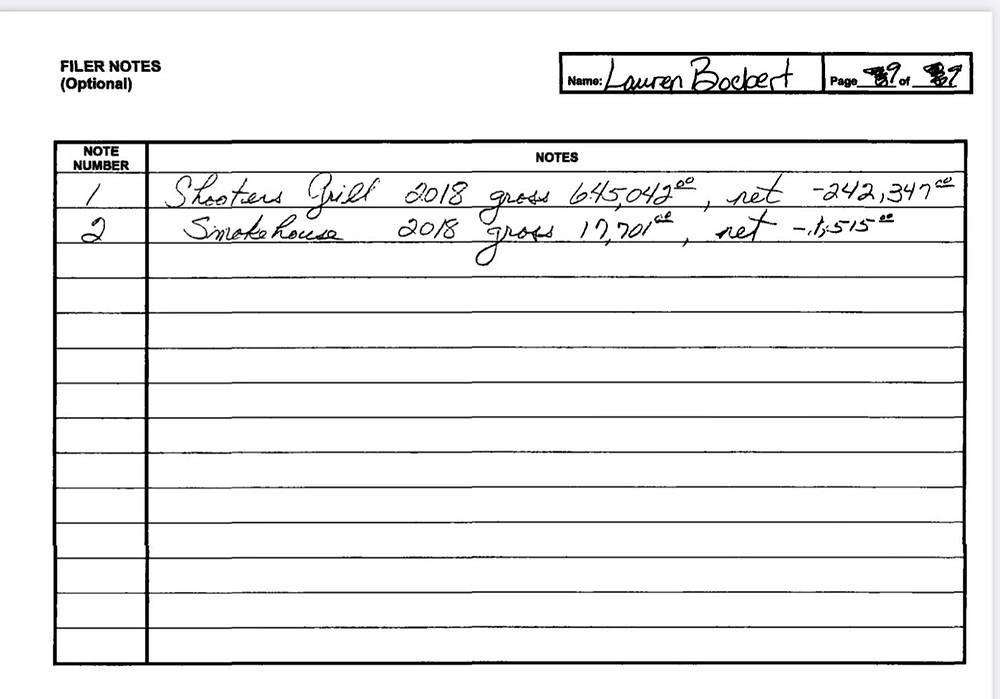 FILER NOTES
(Optional)
Name: Lauren Boebert
Page 9 of 9
NOTE NUMBER NOTES
1 Shooters Grill 2018 gross 645,042.00, net -242,347.00
2 Smokehouse 2018 gross 17,701.00, net -1,515.00